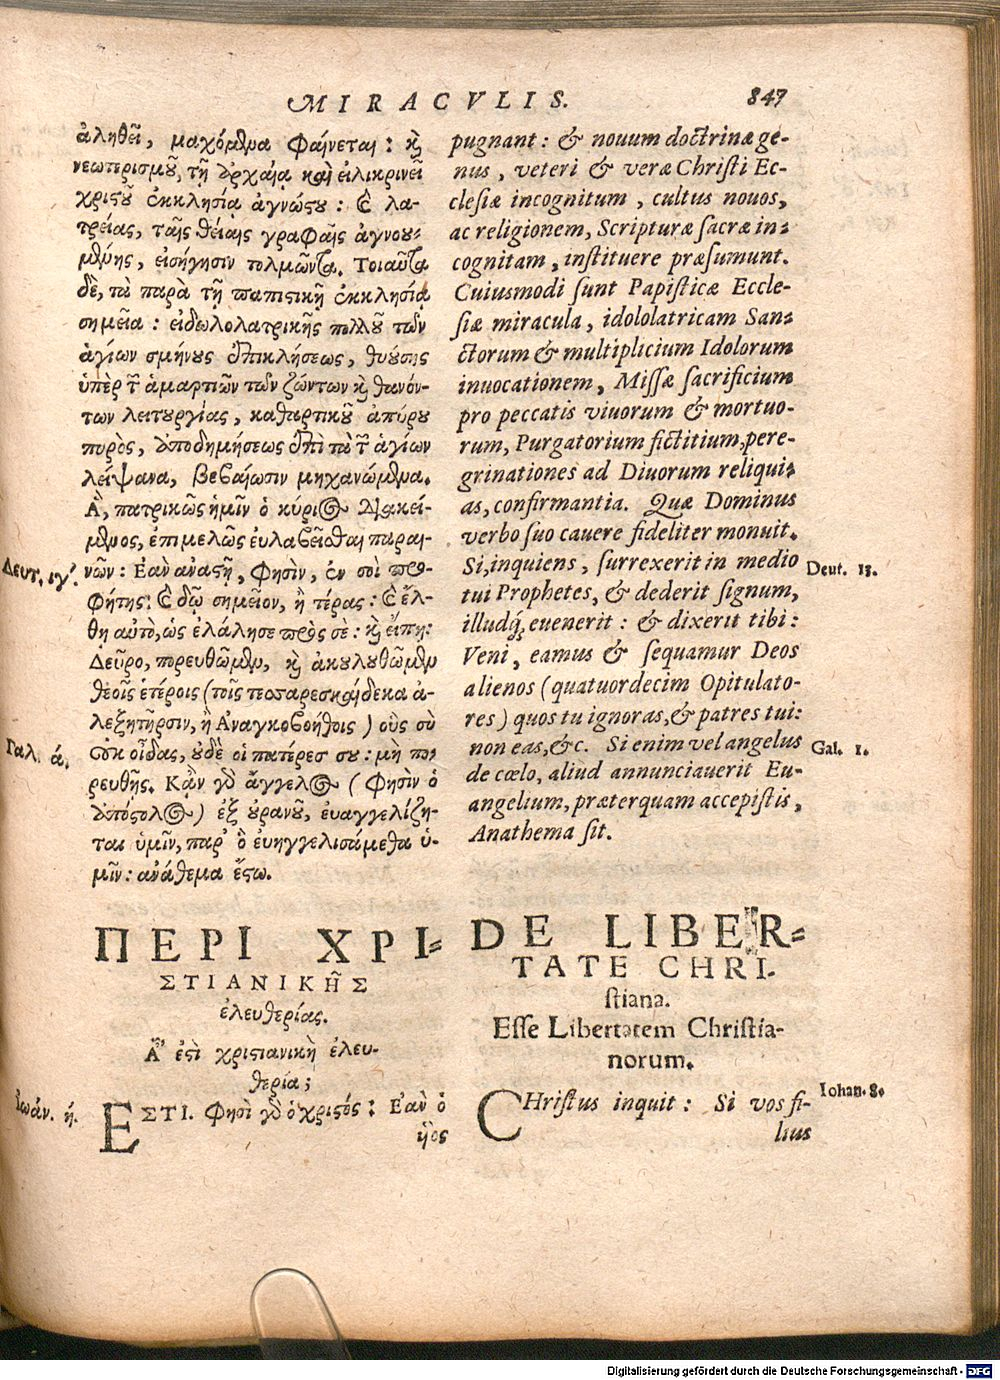 MIRACVLIS. 847
ἀληθεῖ, μαχόμενα φαίνεται: καὶ
νεωτερισμοῦ, τῇ ἀρχαίᾳ καὶ εἰλικρινεῖ
χριστοῦ ἐκκλησίᾳ ἀγνώστου: καὶ λα-
τρείας, ταῖς θείαις γραφαῖς ἀγνου-
μένης, εἰσήγησιν τολμῶντα. Τοιαῦτα
δὲ, τὰ παρὰ τῇ παπιστικῇ ἐκκλησίᾳ
σημεῖα: εἰδωλολατρικῆς πολλοῦ τῶν
ἁγίων σμήνους ἐπικλήσεως, θυούσης
ὑπὲρ τῶν ἁμαρτιῶν τῶν ζώντων καὶ θανόν-
των λειτουργίας, καθαρτικοῦ ἀπύρου
πυρὸς, ἀποδημήσεως ἐπὶ τὰ τῶν ἁγίων
λείψανα, βεβαίωσιν μηχανώμενα.
Ἃ, πατρικῶς ἡμῖν ὁ κύριος διακεί-
μενος, ἐπιμελῶς ἐυλαβεῖσθαι παραι-
νῶν: Ἐὰν ἀναστῇ, φησὶν, ἐν σοὶ προ-
φήτης: καὶ δῷ σημεῖον, ἢ τέρας: καὶ ἔλ-
θῃ αὐτὸ, ὡς ἐλάλησε πρὸς σὲ: καὶ εἴπῃ:
Δεῦρο, πορευθῶμεν, καὶ ἀκολουθῶμεν
θεοῖς ἑτέροις (τοῖς τεσσαρεσκαίδεκα ἀ-
λεξητῆρσιν, ἢ Ἀναγκοβοήθοις) οὓς σὺ
οὐκ οἶδας, οὐδὲ οἱ πατέρες σου: μὴ πο-
ρευθῇς. Κἂν γὰρ ἄγγελος (φησὶν ὁ
ἀπόστολος) ἐξ οὐρανοῦ, ἐυαγγελίζη-
ται ὑμῖν, παρ' ὃ ἐυηγγελισάμεθα ὑ-
μῖν: ἀνάθεμα ἔστω.
Δευτ. ιγ'.
Γαλ. ά.
ΠΕΡΙ ΧΡΙ-
ΣΤΙΑΝΙΚΗ͂Σ
ἐλευθερίας.
Ἆ ἐστὶ χριστιανικὴ ἐλευ-
θερία;
Ἰωάν. ή.
ΕΣΤΙ. Φησὶ γὰρ ὁ χριστός: Ἐαν ὁ
ὑιὸς
pugnant: & nouum doctrinæ ge-
nus, veteri & veræ Christi Ec-
clesiæ incognitum, cultus nouos,
ac religionem, Scripturæ sacræ in-
cognitam, instituere præsumunt.
Cuiusmodi sunt Papisticæ Eccle-
siæ miracula, idololatricam San-
ctorum & multiplicium Idolorum
inuocationem, Missæ sacrificium
pro peccatis viuorum & mortuo-
rum, Purgatorium fictitium, pere-
grinationes ad Diuorum reliqui-
as, confirmantia. Quæ Dominus
verbo suo cauere fideliter monuit.
Si, inquiens, surrexerit in medio
tui Prophetes, & dederit signum,
illudq́; euenerit: & dixerit tibi:
Veni, eamus & sequamur Deos
alienos (quatuordecim Opitulato-
res) quos tu ignoras, & patres tui:
non eas, &c. Si enim vel angelus
de cœlo, aliud annunciauerit Eu-
angelium, præterquam accepistis,
Anathema sit.
Deut. 13.
Gal. 1.
DE LIBER-
TATE CHRI-
stiana.
Esse Libertatem Christia-
norum.
CHristus inquit: Si vos fi-
lius
Iohan. 8.
Digitalisierung gefördert durch die Deutsche Forschungsgemeinschaft - DFG